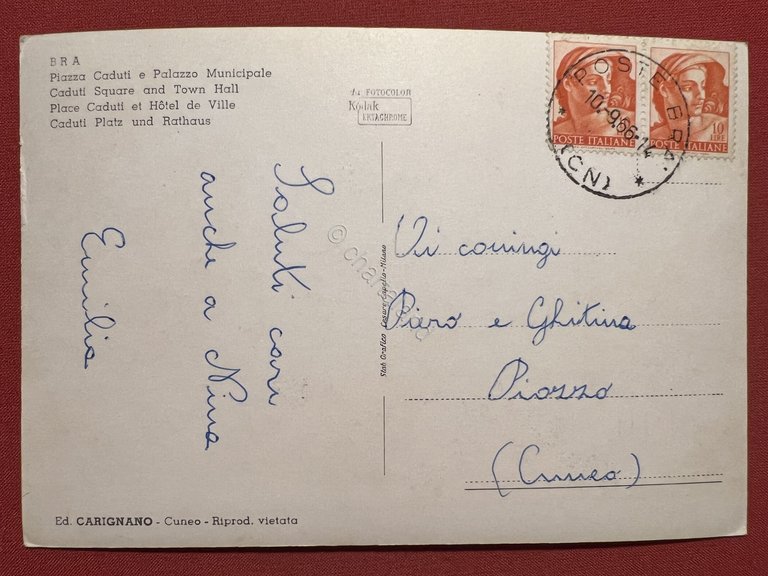 BRA
Piazza Caduti e Palazzo Municipale
Caduti Square and Town Hall
Place Caduti et Hôtel de Ville
Caduti Platz und Rathaus
FOTOCOLOR
Kodak
EKTACHROME
POSTE BRA
10.-9.66-14
(CN)
POSTE ITALIANE
10
LIRE
POSTE ITALIANE
Saluti cari
anche a Nina
Emilia
Stab Grafico Cesare Milano
Piero e Ghitina
Piozzo
(Cuneo)
Ed. CARIGNANO - Cuneo - Riprod. vietata